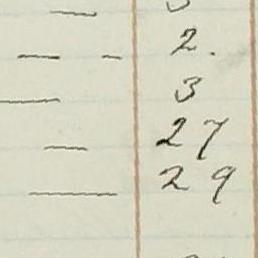 — —
— — 2.
— 3
— 27
— 29